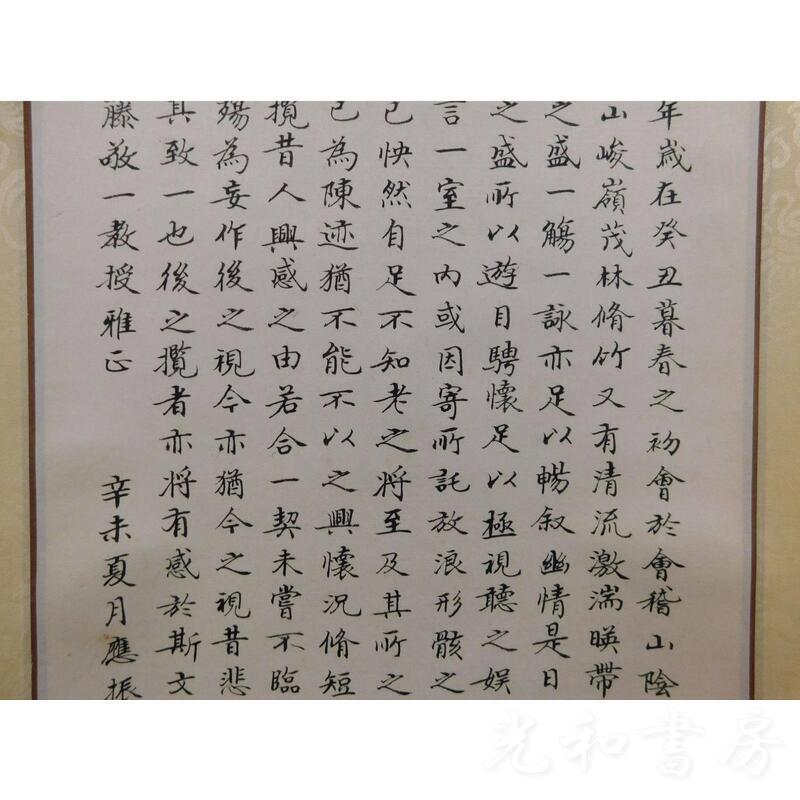 年歲在癸丑暮春之初會於會稽山陰
山峻嶺茂林脩竹又有清流激湍暎帶
之盛一觴一詠亦足以暢叙幽情是日
之盛所以遊目騁懷足以極視聽之娱
言一室之内或因寄所託放浪形骸之
已怏然自足不知老之将至及其所之
已為陳迹猶不能不以之興懷況脩短
攬昔人興感之由若合一契未嘗不臨
殤為妄作後之視今亦猶今之視昔悲
其致一也後之攬者亦将有感於斯文
藤敬一教授雅正 辛未夏月應振
光和書房